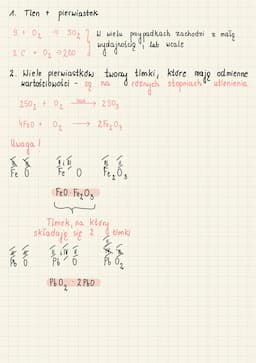 1. Tlen + pierwiastek
S + O₂ → SO₂ } W wielu przypadkach zachodzi z małą
2 C + O₂ → 2CO } wydajnością, lub wcale
2. Wiele pierwiastków tworzy tlenki, które mają odmienne
wartościowości - są na różnych stopniach utlenienia
2SO₂ + O₂ → 2SO₃
4FeO + O₂ → 2Fe₂O₃
Uwaga!
II II II i III III II
Fe O Fe O Fe₂O₃
FeO · Fe₂O₃
Tlenek, na który
składają się 2 tlenki
II II II i IV II IV II
Pb O Pb O Pb O₂
PbO₂ · 2PbO